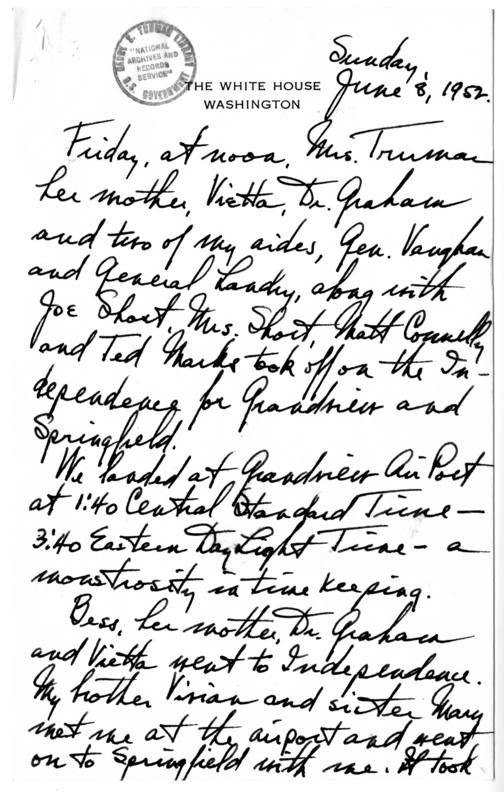 HARRY S. TRUMAN LIBRARY
"NATIONAL
ARCHIVES AND
RECORDS
SERVICE"
U.S. GOVERNMENT
THE WHITE HOUSE
WASHINGTON
Sunday,
June 8, 1952.
Friday, at noon, Mrs. Truman
her mother, Vietta, Dr. Graham
and two of my aides, Gen. Vaughan
and General Landry, along with
Joe Short, Mrs. Short, Matt Connelly
and Ted Marks took off on the In-
dependence for Grandview and
Springfield.
We landed at Grandview Air Port
at 1:40 Central Standard Time—
3:40 Eastern Day Light Time— a
monstrosity in time keeping.
Bess, her mother, Dr. Graham
and Vietta went to Independence.
My brother Vivian and sister Mary
met me at the airport and went
on to Springfield with me. It took